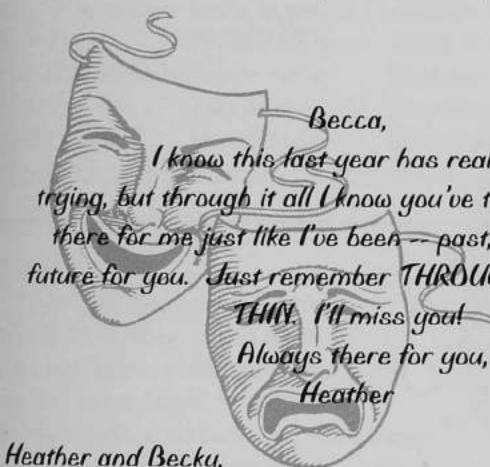 Becca,
I know this last year has real
trying, but through it all I know you've t
there for me just like I've been -- past,
future for you. Just remember THROU
THIN. I'll miss you!
Always there for you,
Heather
Heather and Becky,